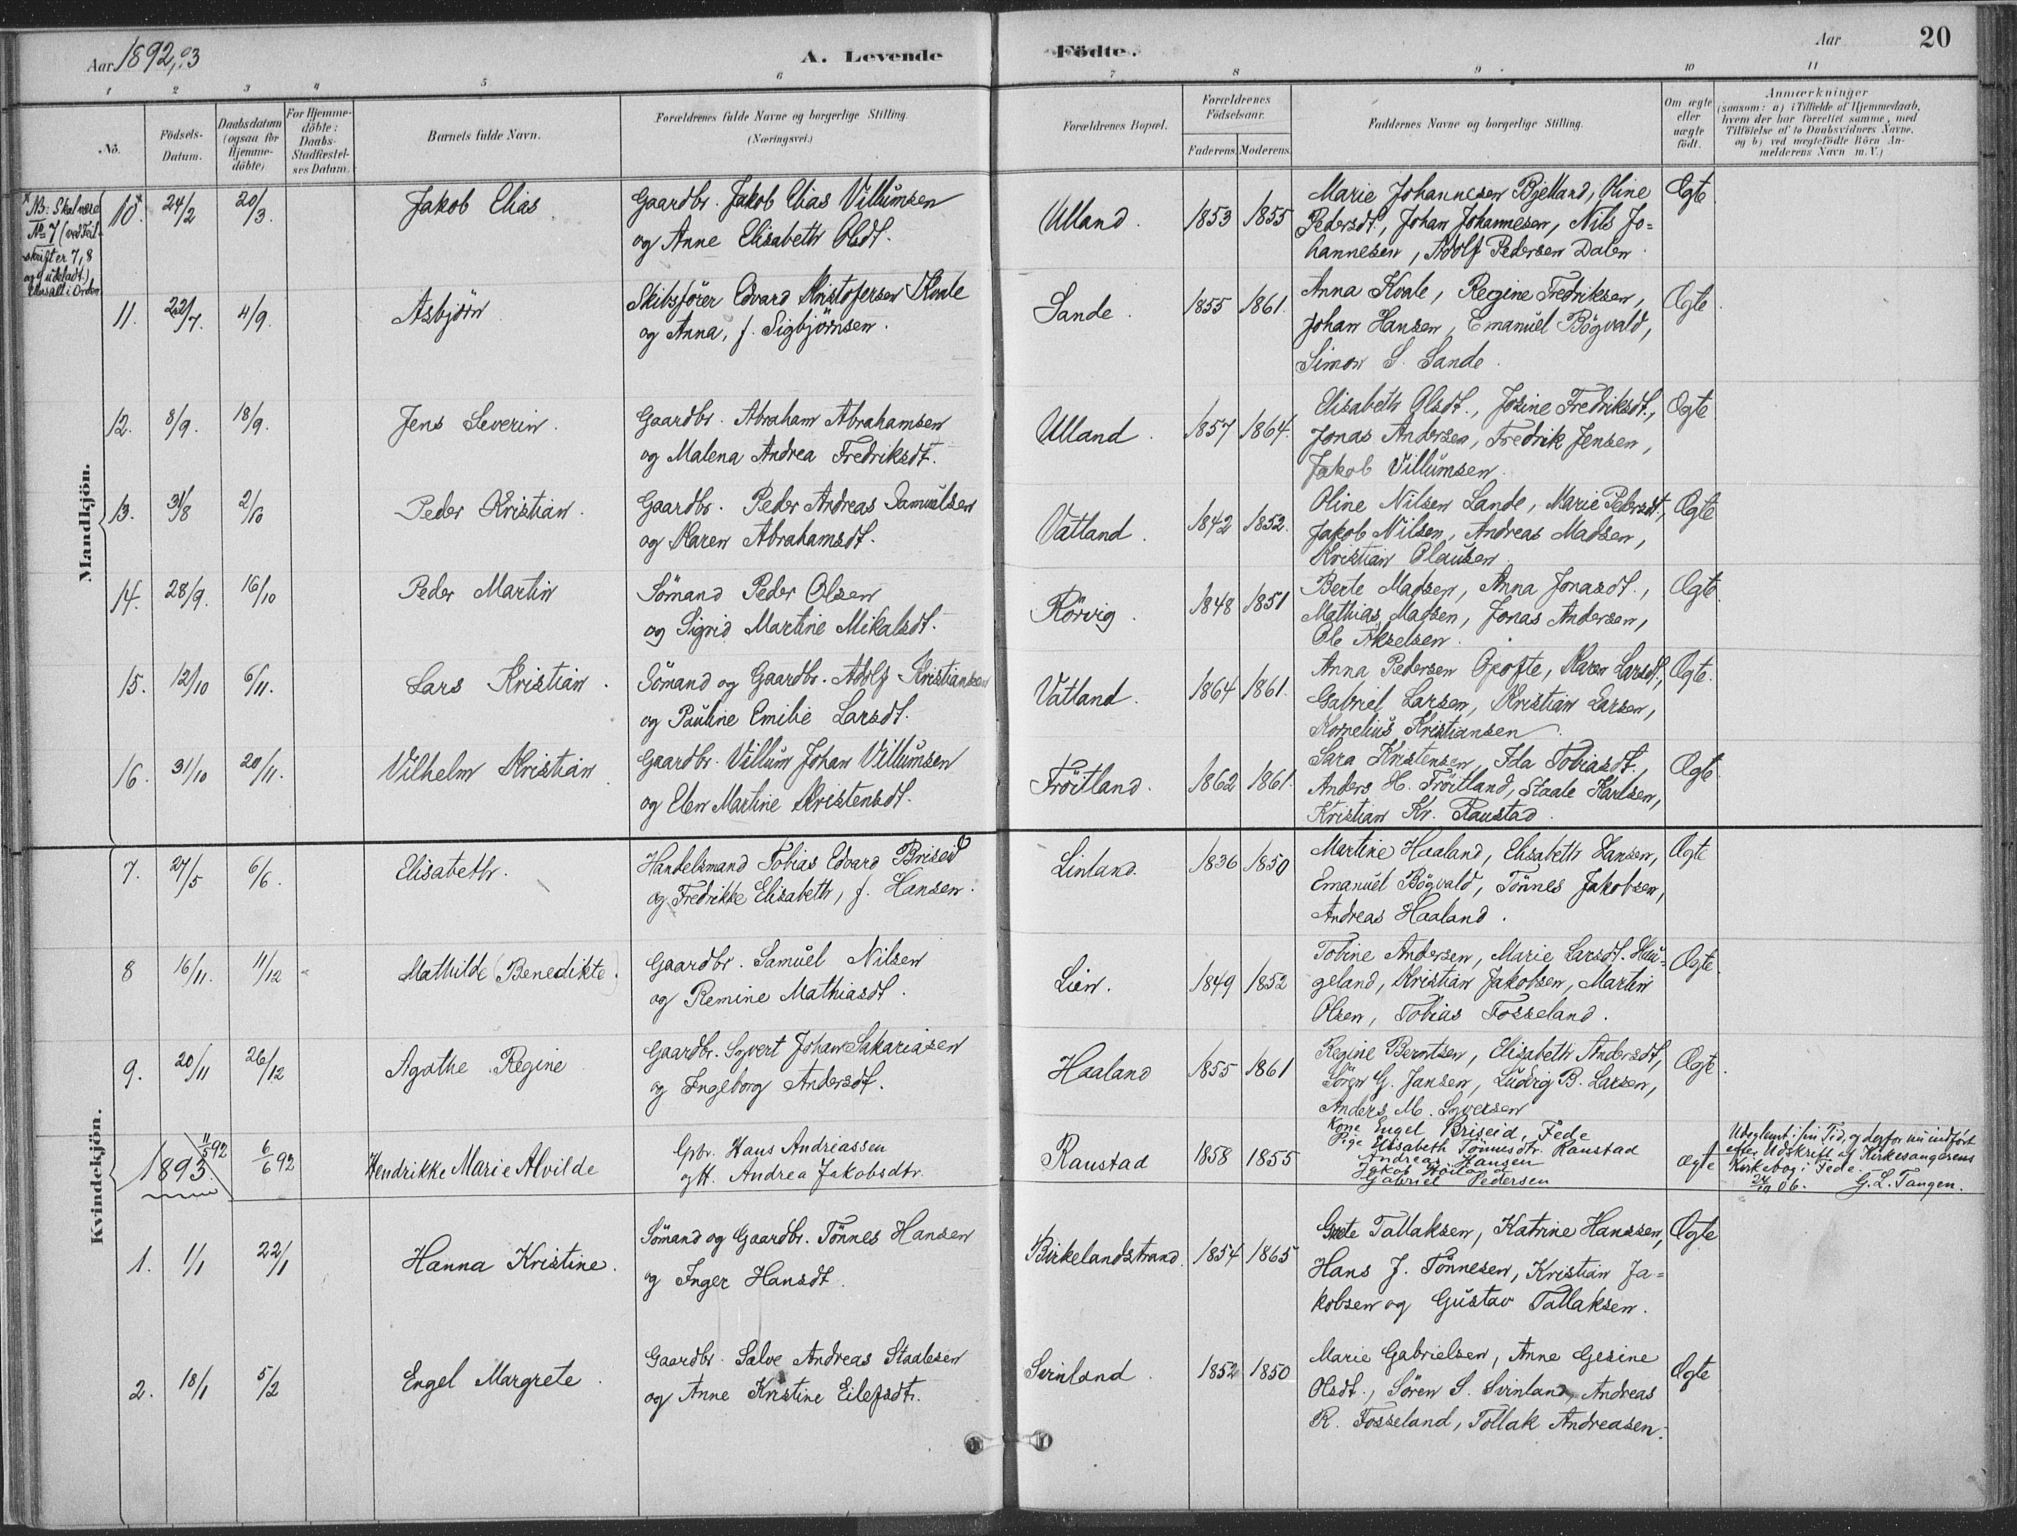 Aar 1892, 93
A. Levende Födte.
Aar
20
1 2 3 4 5 6 7 8 9 10 11
No.
Födsels-Datum.
Daabsdatum (ogsaa for Hjemmedöbte)
For Hjemmedöbte: Daabs-Stadfæstelses Datum.
Barnets fulde Navn.
Forældrenes fulde Navne og borgerlige Stilling. (Næringsvei.)
Forældrenes Bopæl.
Forældrenes Födselsaar.
Faderens. Moderens.
Faddernes Navne og borgerlige Stilling.
Om ægte eller uægte födt.
Anmærkninger
(saasom: a) i Tilfælde af Hjemmedaab,
hvem der har forrettet samme, med
Tilföielse af to Daabsvidners Navne,
og b) ved uægtefödte Börn An-
melderens Navn m. V.)
Mandkjön.
NB: Skal være
No 7 (ved Feil-
skrift er 7, 8
og 9 udeladt),
10. 24/2 20/3. Jakob Elias Gaardbr. Jakob Elias Villumsen Ulland. 1853 1855 Marie Johannesen Bjelland, Oline Ægte
og Anne Elisabeth Olsdt. Pedersdt., Johan Johannesen, Nils Jo-
hannesen, Adolf Pedersen Dalen.
11. 22/7. 4/9. Asbjörn Skibsförer Edvard Kristofersen Kvale Sande. 1855 1861. Anna Kvale, Regine Fredriksen, Ægte
og Anna, f. Sigbjörnsen. Johan Hansen, Emanuel Bögvald,
Simon S. Sande.
12. 8/9. 18/9. Jens Severin. Gaardbr. Abraham Abrahamsen Ulland. 1857 1864. Elisabeth Olsdt., Josine Fredriksdt., Ægte
og Malena Andrea Fredriksdt. Jonas Andersen, Fredrik Jensen,
Jakob Villumsen.
13. 31/8 2/10 Peder Kristian. Gaardbr. Peder Andreas Samuelsen Vatland. 1842 1852. Oline Nilsen Lande, Marie Pedersdt., Ægte
og Karen Abrahamsdt. Jakob Nilsen, Andreas Madsen,
Kristian Olausen.
14. 28/9. 16/10 Peder Martin Sömand Peder Olsen Rörvig. 1848 1851 Berte Madsen, Anna Jonasdt., Ægte
og Sigrid Martine Mikalsdt. Mathias Madsen, Jonas Andersen,
Ole Akselsen.
15. 12/10 6/11. Lars Kristian. Sömand og Gaardbr. Adolf Kristiansen Vatland. 1864 1861. Anna Pedersen Opofte, Karen Larsdt., Ægte.
og Pauline Emilie Larsdt. Gabriel Larsen, Kristian Larsen,
Kornelius Kristiansen.
16. 31/10 20/11. Vilhelm Kristian Gaardbr. Villum Johan Villumsen Fröitland. 1862 1861. Sara Kristensen, Ida Tobiasdt. Ægte
og Elen Martine Kristensdt. Anders H. Fröitland, Staale Karlsen,
Kristian Kr. Raustad.
Kvindekjön.
7. 27/5 6/6. Elisabeth. Handelsmand Tobias Edvard Briseid Linland. 1836 1850 Martine Haaland, Elisabeth Hansen, Ægte
og Fredrikke Elisabeth, f. Hansen. Emanuel Bögvald, Tönnes Jakobsen,
Andreas Haaland.
8 16/11. 11/12 Mathilde (Benedikte.) Gaardbr. Samuel Nilsen Lien. 1849 1852 Tobine Andersen, Marie Larsdt. Hau- Ægte
og Remine Mathiasdt. geland, Kristian Jakobsen, Martin
Olsen, Tobias Fosseland.
9. 20/11 26/12 Agathe Regine Gaardbr. Syvert Johan Sakariasen Haaland 1855 1861 Regine Berntsen, Elisabeth Andersdt., Ægte.
og Ingeborg Andersdt. Sören G. Jansen, Ludvig B. Larsen,
Anders M. Syversen
1893. 11/5 92 6/6 92 Hendrikke Marie Alvilde Gbr. Hans Andreassen Raustad 1858 1855 Kone Engel Briseid, Fede ægte
og H. Andrea Jakobsdtr. Pige Elisabeth Tönnesdtr. Raustad
Andreas Hansen
Jakob
Gabriel Pedersen
Udeglemt i sin Tid, og derfor nu indfört
efter Udskrift af Kirkesangerens
Kirkebog i Fede.
06. G. L. Tangen.
1. 1/1 22/1 Hanna Kristine. Sömand og Gaardbr. Tönnes Hansen Birkelandstrand. 1854 1865 Tallaksen, Katrine Hanssen, Ægte
og Inger Hansdt. Hans J. Tönnesen, Kristian Ja-
kobsen og Gustav Tallaksen.
2. 18/1 5/2 Engel Margrete. Gaardbr. Salve Andreas Staalesen Svinland. 1852 1850 Marie Gabrielsen, Anne Gesine Ægte
og Anne Kristine Eilefsdtr. Olsdt., Sören S. Svinland, Andreas
R. Fosseland, Tollak Andreasen.